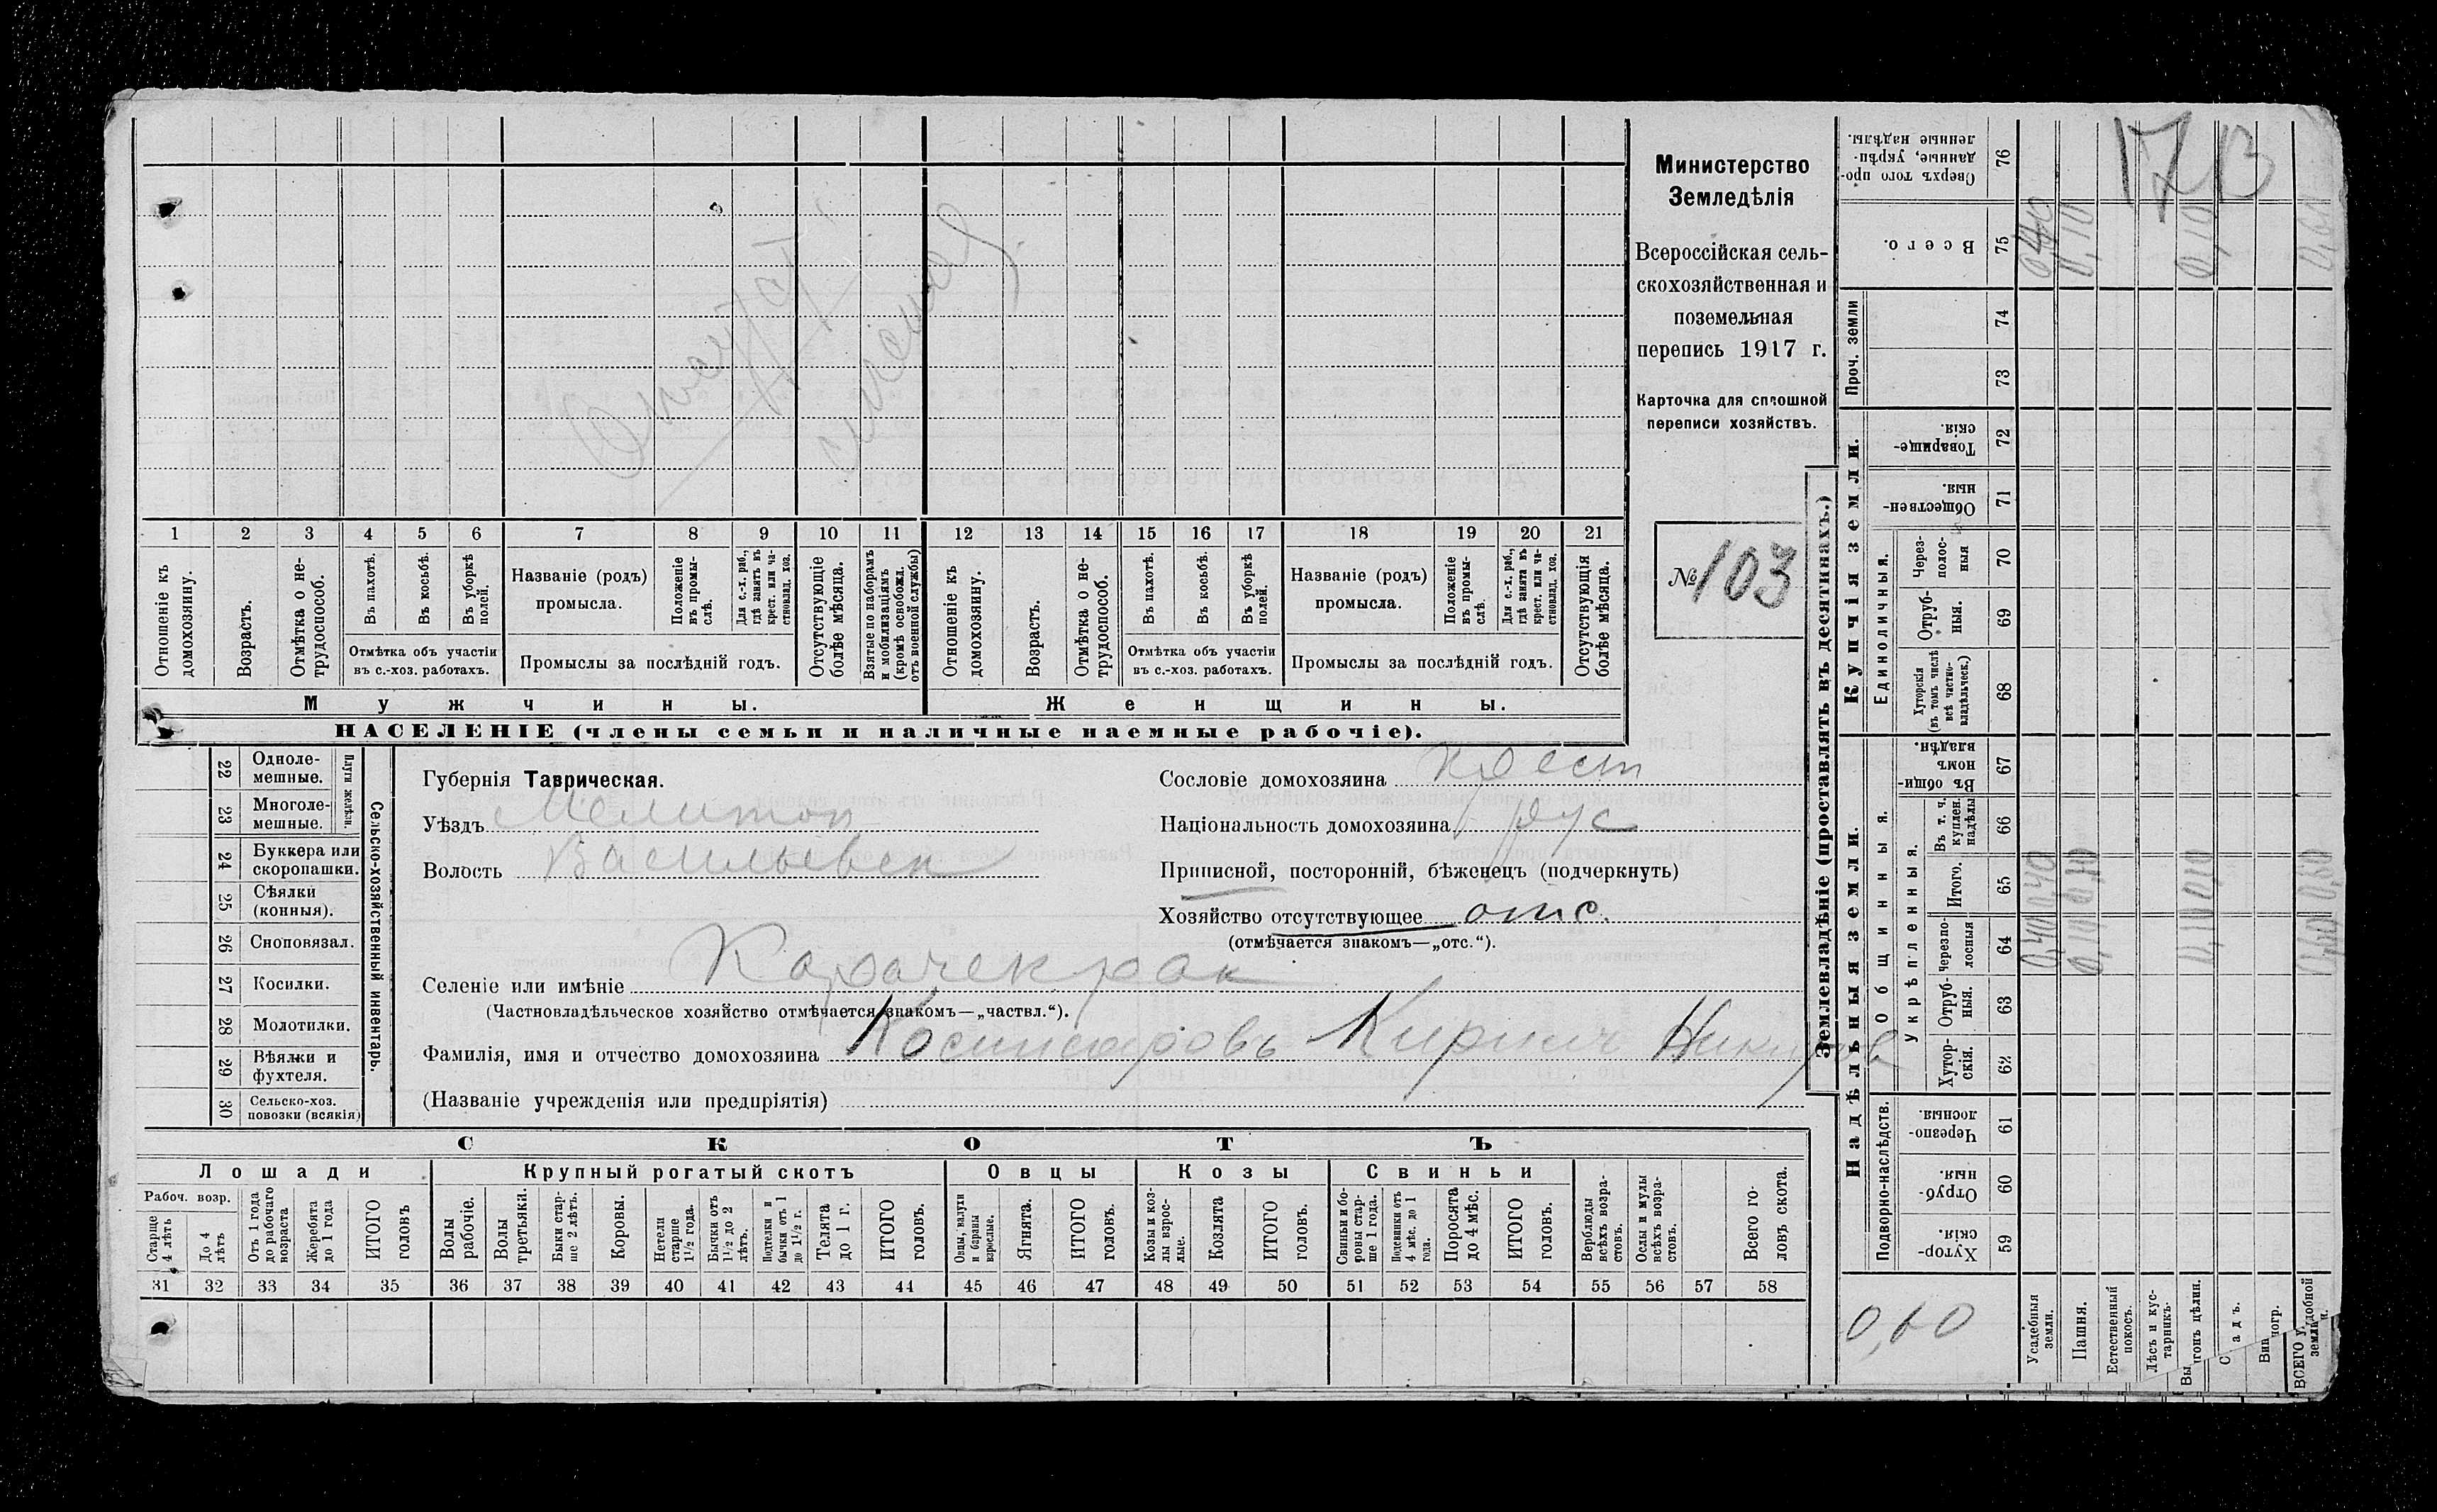 Министерство
Земледѣлія
Всероссійская сель-
скохозяйственная и
поземельная
перепись 1917 г.
Карточка для сплошной
переписи хозяйствъ.
№ 103
1 2 3 4 5 6 7 8 9 10 11 12 13 14 15 16 17 18 19 20 21
Отношеніе къ домохозяину.
Возрастъ.
Отмѣтка о не-трудоспособ.
Въ пахотѣ.
Въ косьбѣ.
Въ уборкѣ полей.
Отмѣтка объ участіи
въ с.-хоз. работахъ.
Названіе (родъ)
промысла.
Положеніе въ промы-слѣ.
Для с.-х. раб., гдѣ занятъ въ крест. или ча-стновлад. хоз.
Промыслы за послѣдній годъ.
Отсутствующіе болѣе мѣсяца.
Взятые по наборамъ и мобилизаціямъ (кромѣ освобожд. отъ военной службы)
Отношеніе къ домохозяину.
Возрастъ.
Отмѣтка о не-трудоспособ.
Въ пахотѣ.
Въ косьбѣ.
Въ уборкѣ полей.
Отмѣтка объ участіи
въ с.-хоз. работахъ.
Названіе (родъ)
промысла.
Положеніе въ промы-слѣ.
Для с.-х. раб., гдѣ занята въ крест. или ча-стновлад. хоз.
Промыслы за послѣдній годъ.
Отсутствующія болѣе мѣсяца.
Мужчины.
Женщины.
НАСЕЛЕНІЕ (члены семьи и наличные наемные рабочіе).
22 Однолемешные.
23 Многолемешные.
Плуги желѣзн.
24 Буккера или скоропашки.
25 Сѣялки (конныя).
26 Сноповязал.
27 Косилки.
28 Молотилки.
29 Вѣялки и фухтеля.
30 Сельско-хоз. повозки (всякія)
Сельско-хозяйственный инвентарь.
Губернія Таврическая.
Уѣздъ Мелитоп
Волость Васильевск
Сословіе домохозяина крест
Національность домохозяина рус
Приписной, посторонній, бѣженецъ (подчеркнуть)
Хозяйство отсутствующее отс.
(отмѣчается знакомъ—„отс.“).
Селеніе или имѣніе Карачекрак
(Частновладѣльческое хозяйство отмѣчается знакомъ—„частвл.“).
Фамилія, имя и отчество домохозяина
(Названіе учрежденія или предпріятія)
СКОТЪ
Лошади
Крупный рогатый скотъ
Овцы
Козы
Свиньи
Рабоч. возр.
Старше 4 лѣтъ
До 4 лѣтъ
Отъ 1 года до рабочаго возраста
Жеребята до 1 года
ИТОГО головъ
Волы рабочіе.
Волы третьяки.
Быки стар-ше 2 лѣтъ.
Коровы.
Нетели старше 1½ года.
Бычки отъ 1½ до 2 лѣтъ.
Подтелки и бычки отъ 1 до 1½ г.
Телята до 1 г.
ИТОГО головъ.
Овцы, валухи и бараны взрослые.
Ягнята.
ИТОГО головъ.
Козы и коз-лы взрос-лые.
Козлята
ИТОГО головъ.
Свиньи и бо-ровы стар-ше 1 года.
Подсвинки отъ 4 мѣс. до 1 года.
Поросята до 4 мѣс.
ИТОГО головъ.
Верблюды всѣхъ возра-стовъ.
Ослы и мулы всѣхъ возра-стовъ.
Всего го-ловъ скота.
31 32 33 34 35 36 37 38 39 40 41 42 43 44 45 46 47 48 49 50 51 52 53 54 55 56 57 58
Землевладѣніе (проставлять въ десятинахъ.)
Купчія земли.
Надѣльныя земли.
76 Сверхъ того про-данные, укрѣп-ленные надѣлы.
75 Всего.
Проч. земли
74
73
72 Товарище-скія.
71 Обществен-ныя.
Единоличныя.
70 Через-полос-ныя
69 Отруб-ныя.
68 Хуторскія (въ томъ числѣ всѣ частно-владѣльческ.)
Общинныя.
67 Въ общин-номъ владѣн.
Укрѣпленныя.
66 Въ т. ч. куплен. надѣлы
65 Итого.
64 черезпо-лосныя
63 Отруб-ныя.
62 Хутор-скія.
Подворно-наслѣдств.
61 Черезпо-лосныя.
60 Отруб-ныя.
59 Хутор-скія.
Усадебныя земли.
Пашня.
Естественный покосъ.
Лѣсъ и кус-тарникъ.
0,10
0,10
0,60